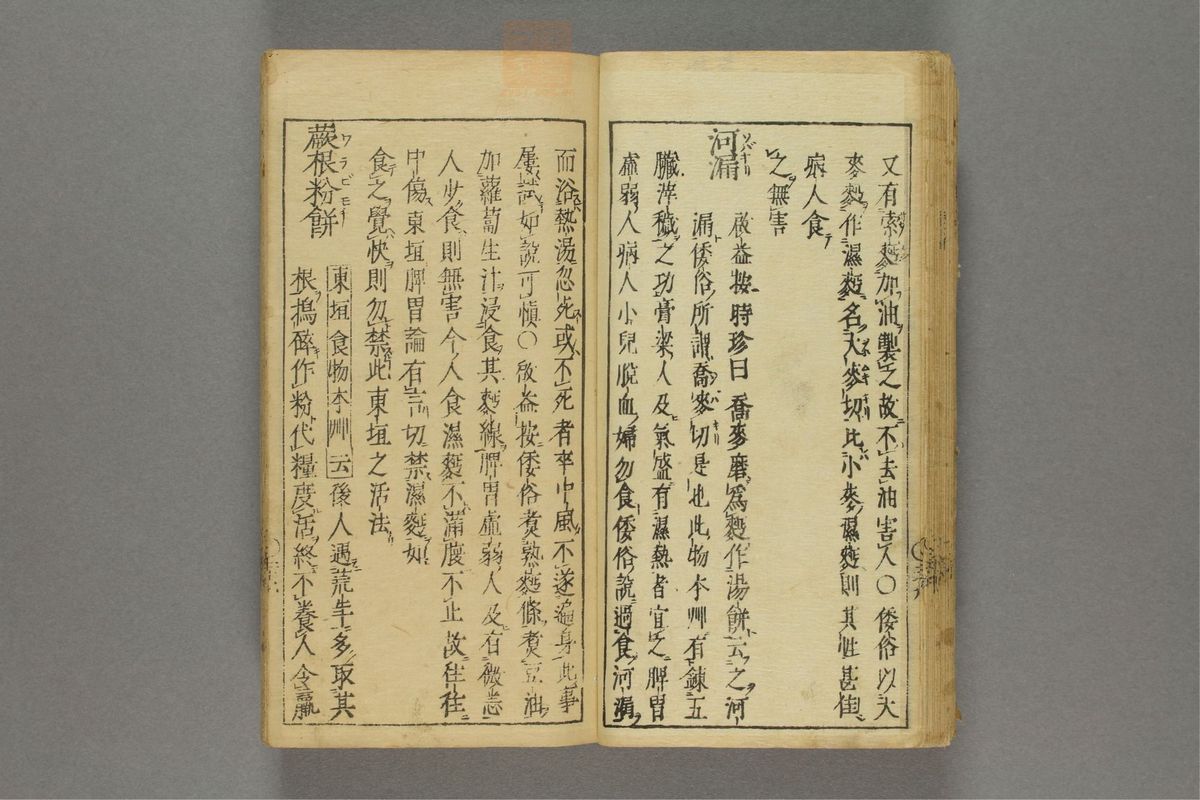 又有索麪加油製之故不去油害人〇倭俗以大
麥麪作濕麪名大麥切比小麥濕麪則其性甚佳
病人食
之無害
河漏
啟益按時珍曰喬麥磨爲麪作湯餅云之河
漏倭俗所謂喬麥切是也此物本艸有鍊五
臓滓穢之功膏粱人及氣盛有濕熱者宜之脾胃
虚弱人病人小兒脫血婦勿食倭俗說過食河漏
而浴熱湯忽死或不死者卒中風不遂遍身此事
屢試如說可愼〇啟益按倭俗煑熟麪條煑豆油
加蘿蔔生汁浸食其麪線脾胃虚弱人及有微恙
人少食則無害今人食濕麪不滿腹不止故往往
中傷東垣脾胃論有言切禁濕麪如
食之覺快則勿禁此東垣之活法
蕨根粉餅
東垣食物本艸云後人遇荒年多取其
根搗碎作粉代糧度活終不養人令羸